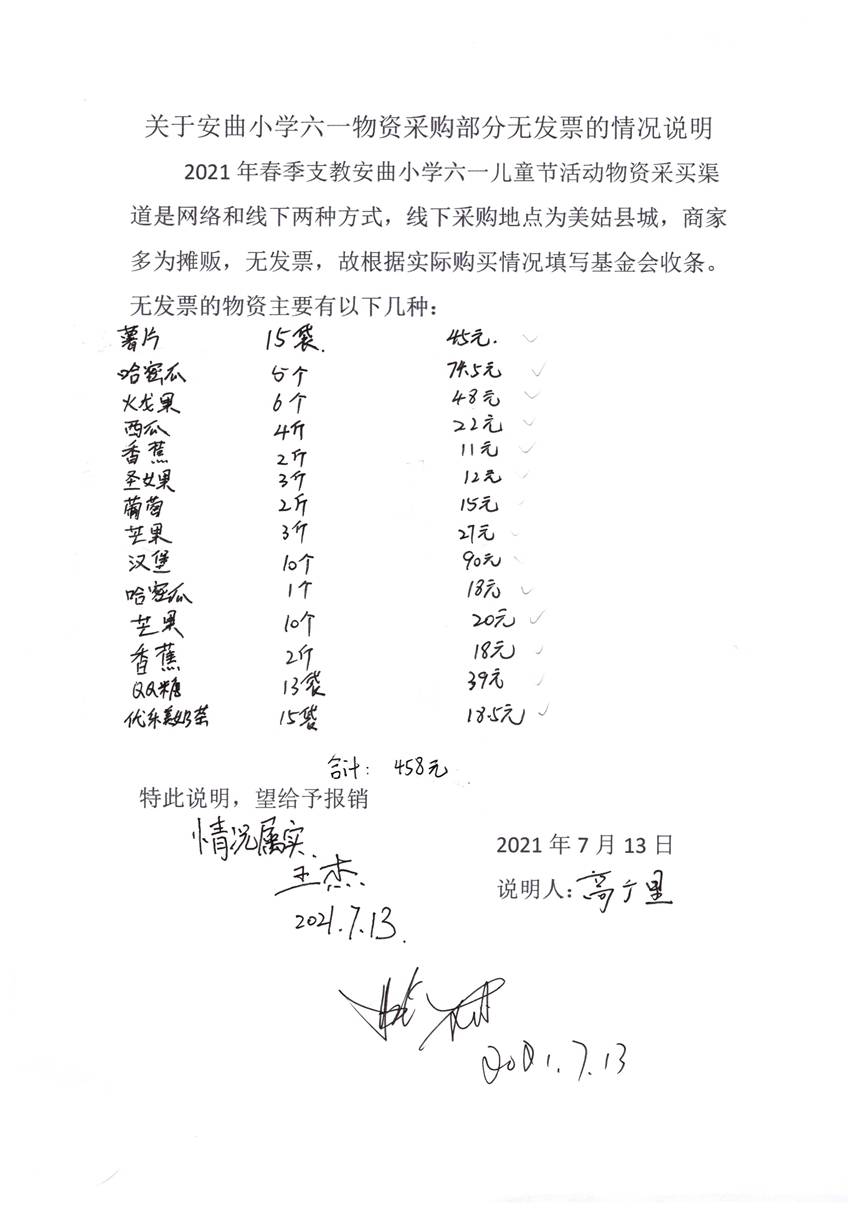 关于安曲小学六一物资采购部分无发票的情况说明
2021年春季支教安曲小学六一儿童节活动物资采买渠
道是网络和线下两种方式，线下采购地点为美姑县城，商家
多为摊贩，无发票，故根据实际购买情况填写基金会收条。
无发票的物资主要有以下几种：
薯片 15袋. 45元.
哈密瓜 5个 74.5元
火龙果 6个 48元
西瓜 4斤 22元
香蕉 2斤 11元
圣女果 3斤 12元
葡萄 2斤 15元
芒果 3斤 27元
汉堡 10个 90元
哈密瓜 1个 18元
芒果 10个 20元
香蕉 2斤 18元
QQ糖 13袋 39元
优乐美奶茶 15袋 18.5元
合计： 458元
特此说明，望给予报销
情况属实.
2021年7月13日
王杰.
说明人：
2021.7.13.
2021.7.13